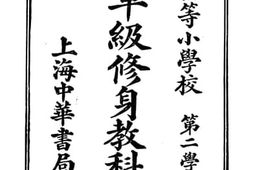 等小學校 第二學
年級修身教科
上海中華書局